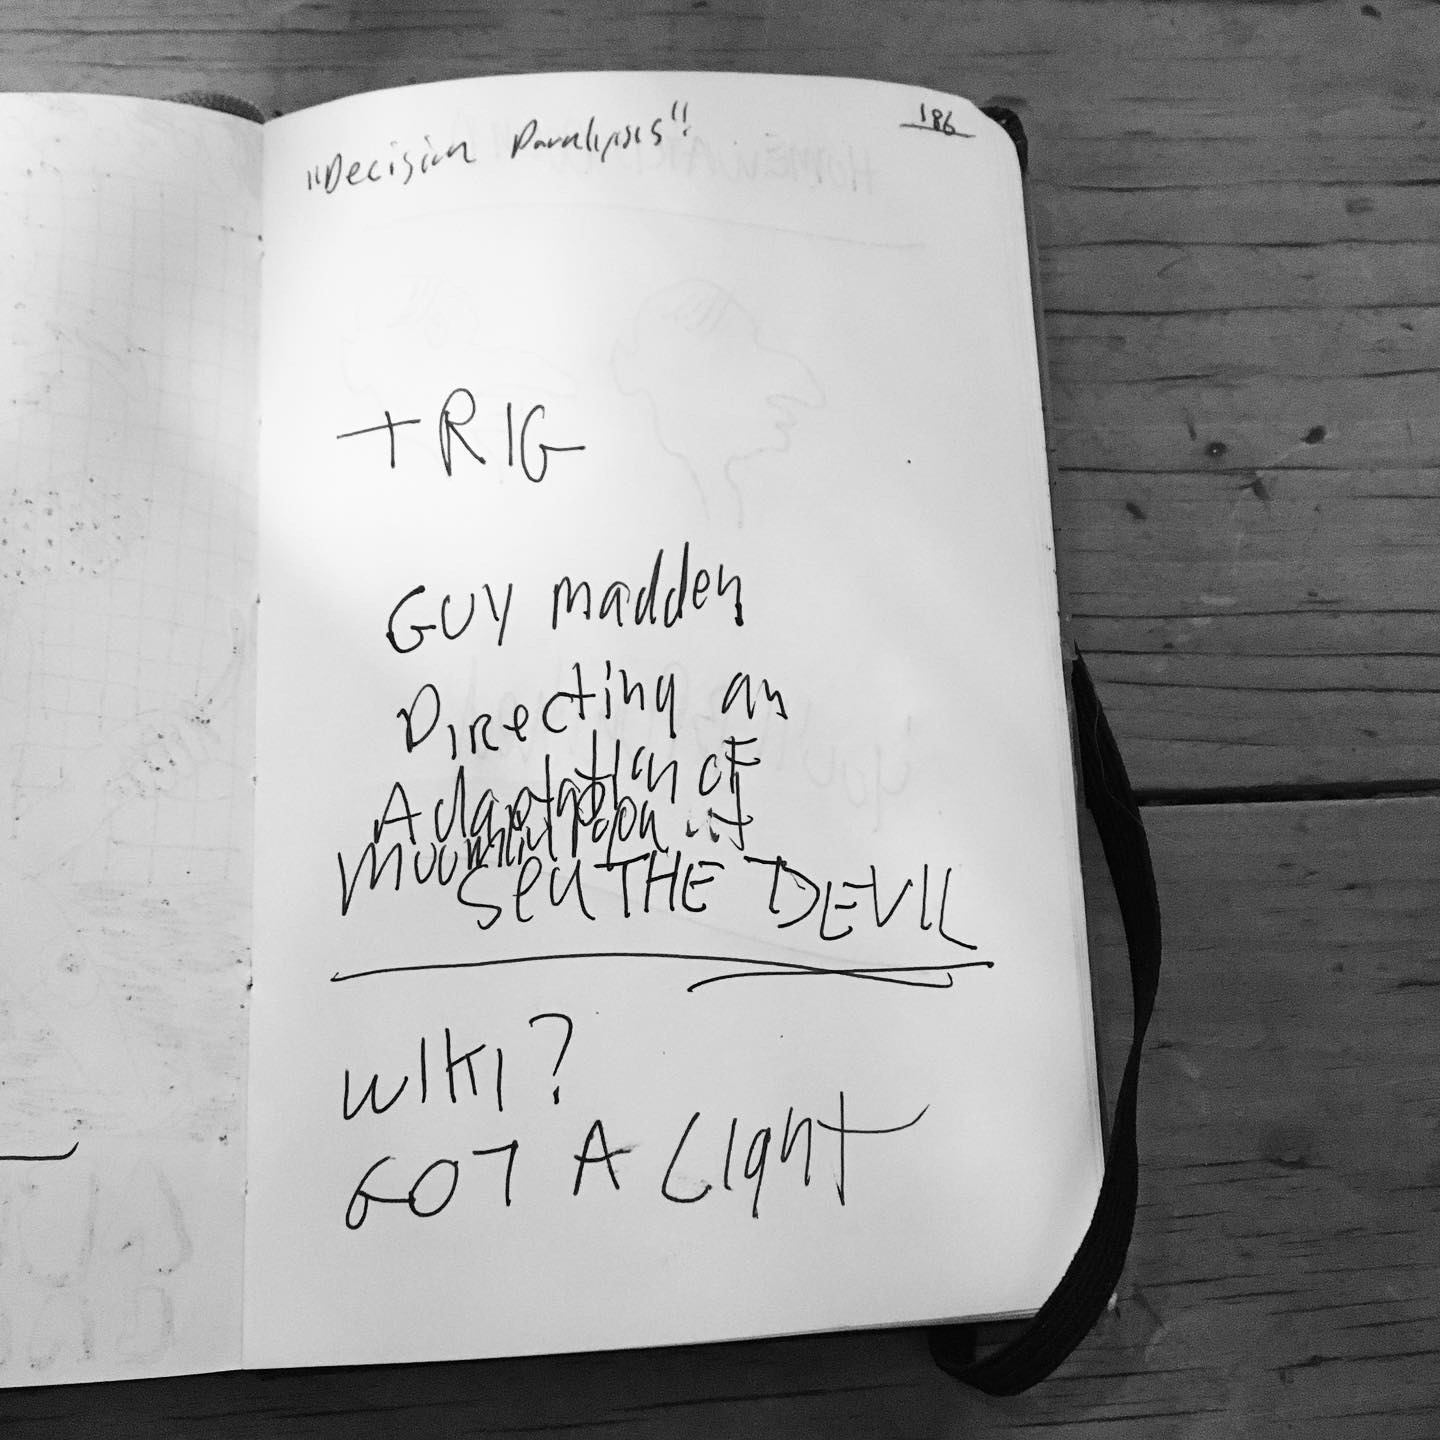 "Decision Paralysis"
186
TRIG
GUY Madden
Directing an
Adaptation of
THE DEVIL
WIKI?
GOT A Light